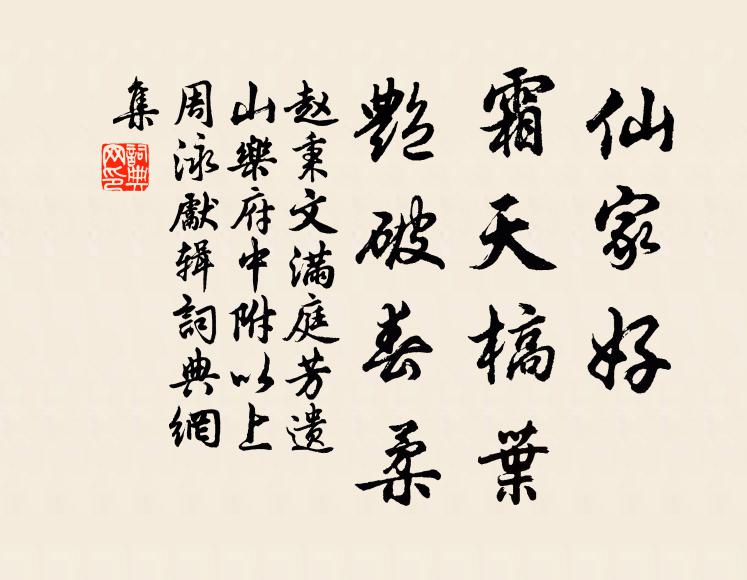 仙家好
霜天槁葉
艷破春柔
赵秉文满庭芳遗
山樂府中附以上
周泳獻辑詞典網
集
詞典網印